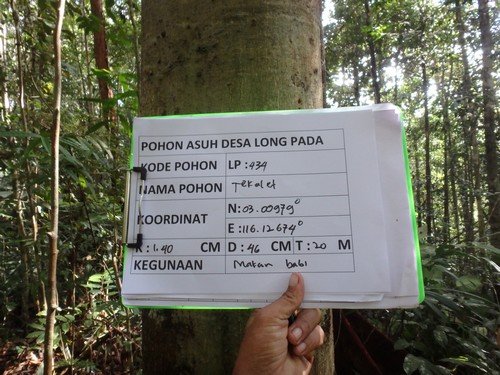 POHON ASUH DESA LONG PADA
KODE POHON LP : 434
NAMA POHON Tekalet
KOORDINAT N: 03.00979°
E: 116.12674°
K : 1.40 CM D : 46 CM T : 20 M
KEGUNAAN Makan babi